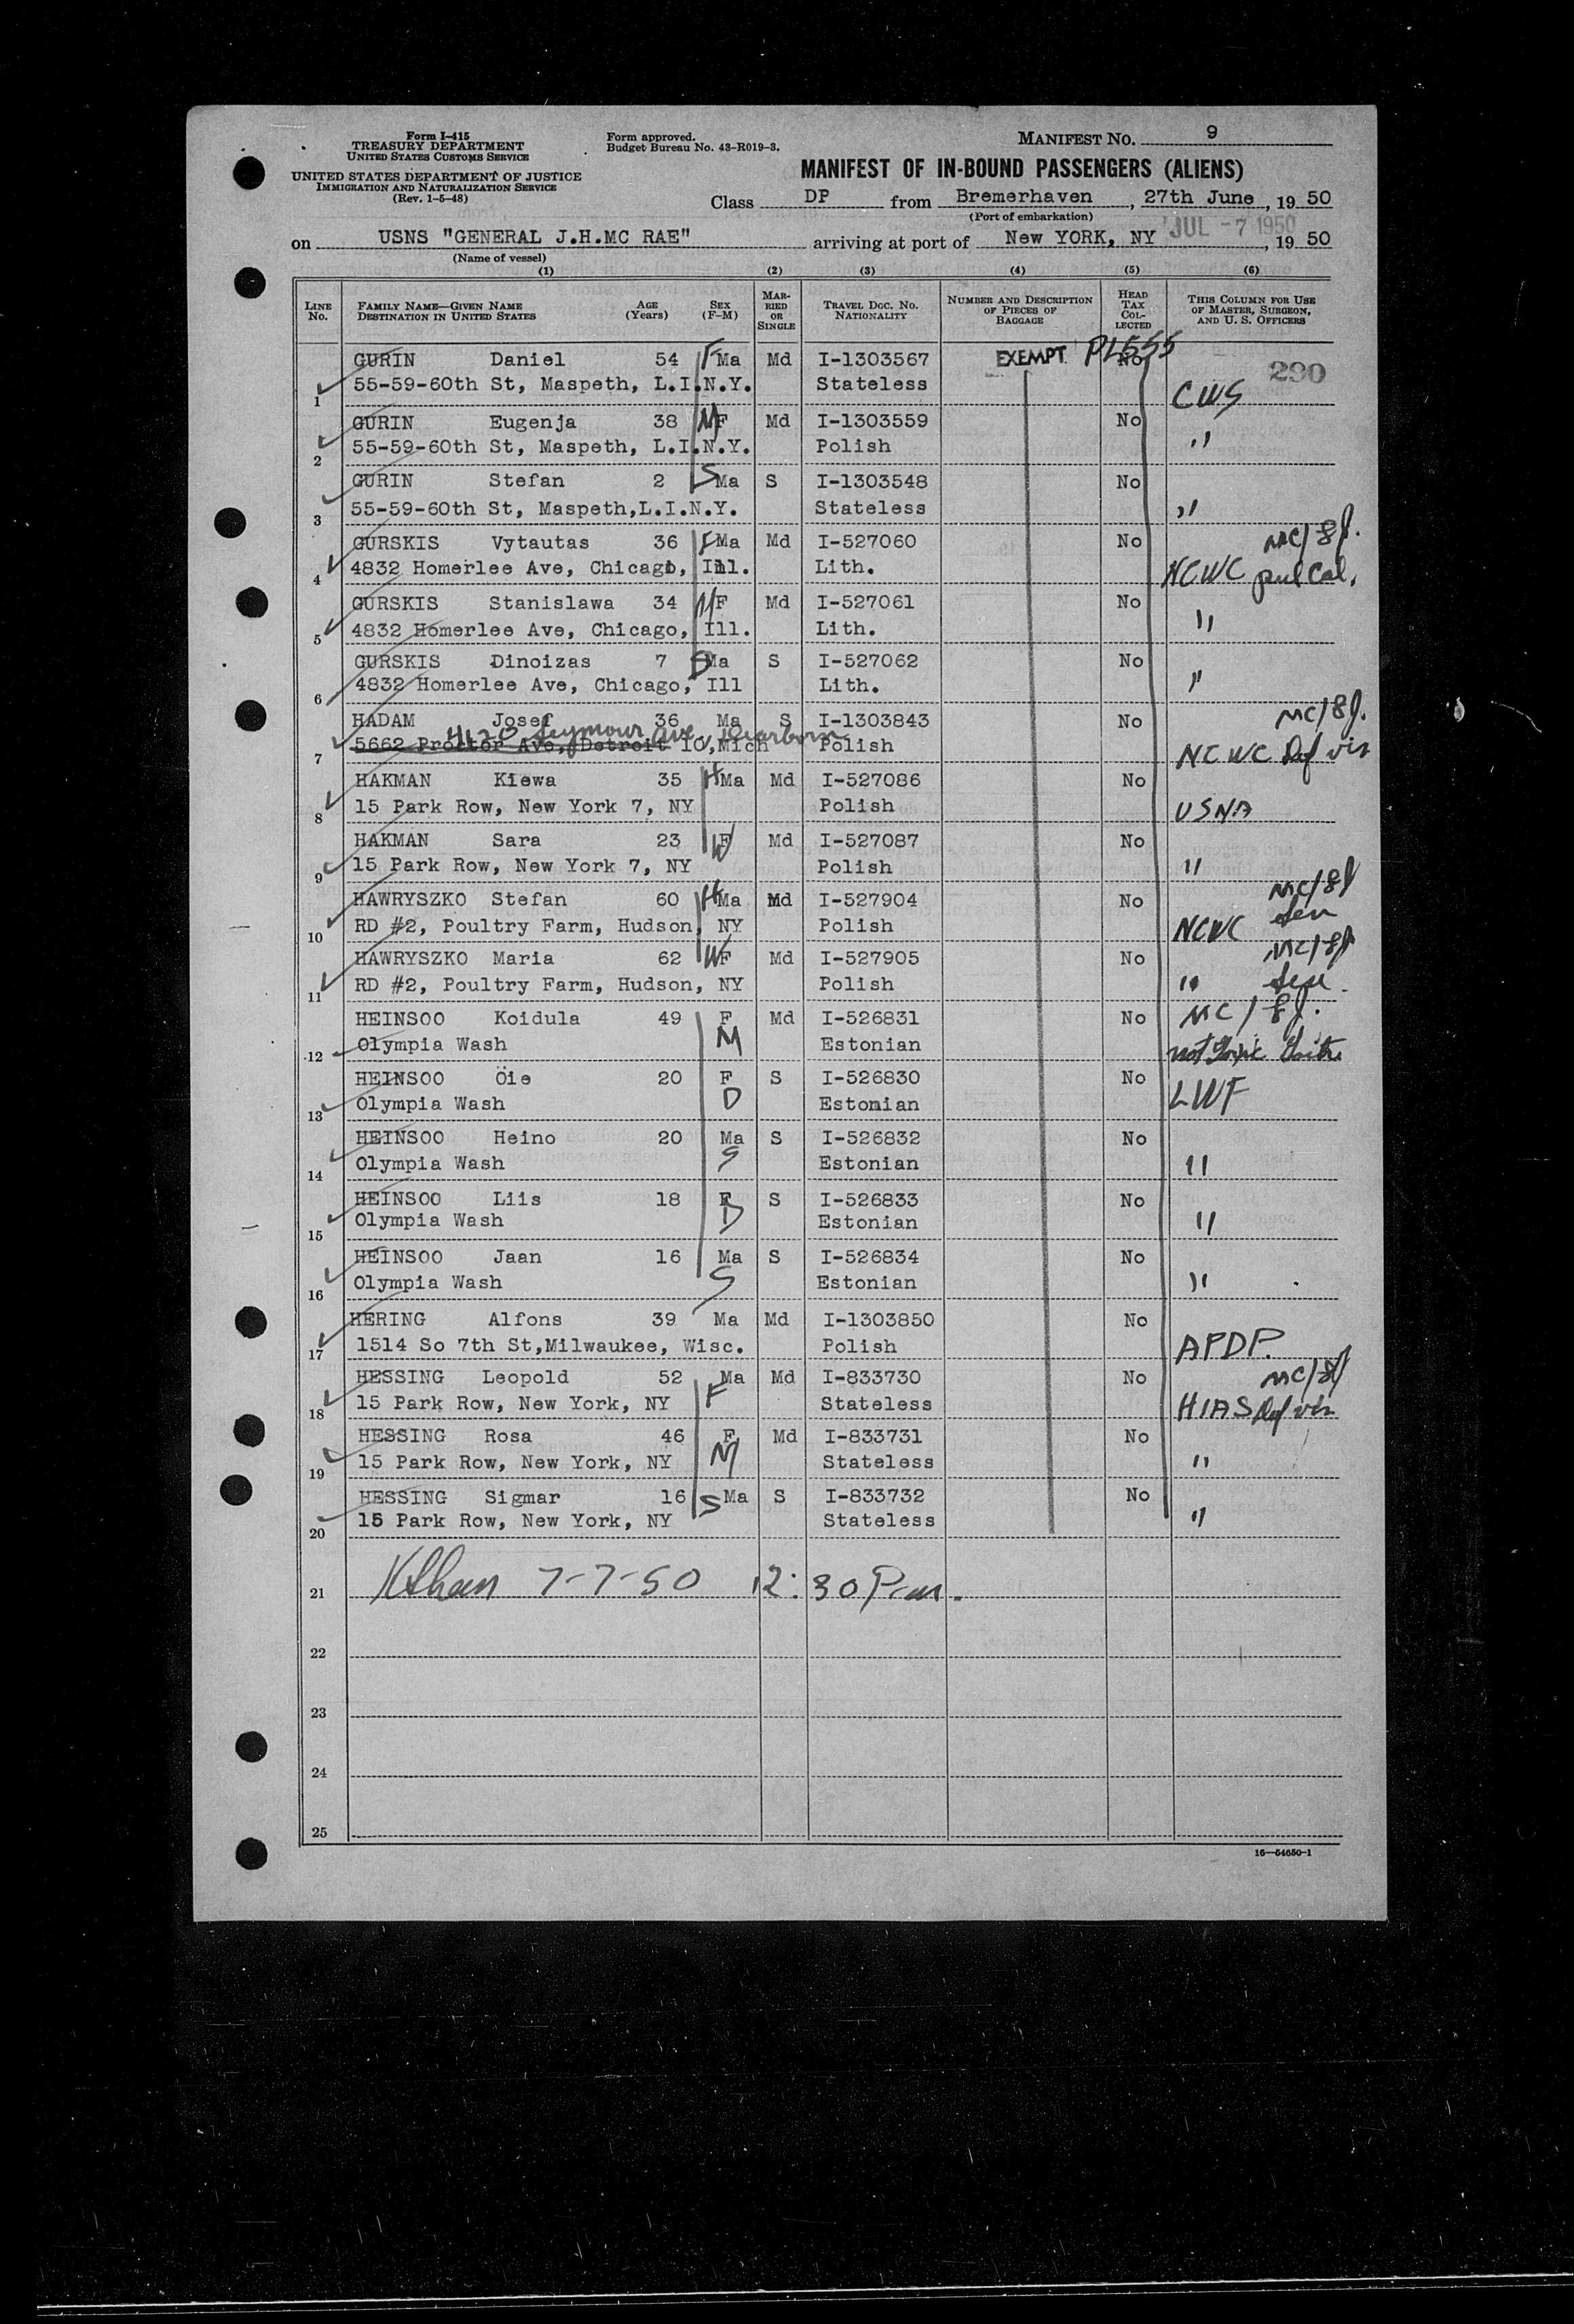 Form I-415
TREASURY DEPARTMENT
UNITED STATES CUSTOMS SERVICE
UNITED STATES DEPARTMENT OF JUSTICE
IMMIGRATION AND NATURALIZATION SERVICE
(Rev. 1-5-48)
Form approved.
Budget Bureau No. 43-R019-3.
MANIFEST NO. 9
MANIFEST OF IN-BOUND PASSENGERS (ALIENS)
Class DP from Bremerhaven, 27th June, 19 50
(Port of embarkation)
JUL -7 1950
on USNS "GENERAL J.H.MC RAE" arriving at port of New YORK, NY, 19 50
(Name of vessel)
(1) (2) (3) (4) (5) (6)
LINE NO. FAMILY NAME—GIVEN NAME DESTINATION IN UNITED STATES AGE (Years) SEX (F-M) MARRIED OR SINGLE TRAVEL DOC. NO. NATIONALITY NUMBER AND DESCRIPTION OF PIECES OF BAGGAGE HEAD TAX COLLECTED THIS COLUMN FOR USE OF MASTER, SURGEON, AND U. S. OFFICERS
GURIN Daniel 54 F Ma Md I-1303567 EXEMPT PL555 No 290
1 55-59-60th St, Maspeth, L.I.N.Y. Stateless CWS
GURIN Eugenja 38 M F Md I-1303559 No
2 55-59-60th St, Maspeth, L.I.N.Y. Polish "
GURIN Stefan 2 S Ma S I-1303548 No
3 55-59-60th St, Maspeth,L.I.N.Y. Stateless "
GURSKIS Vytautas 36 F Ma Md I-527060 No MC/8f.
4 4832 Homerlee Ave, Chicago, Ill. Lith. NCWC pul Cal.
GURSKIS Stanislawa 34 M F Md I-527061 No
5 4832 Homerlee Ave, Chicago, Ill. Lith. "
GURSKIS Dinoizas 7 Ma S I-527062 No
6 4832 Homerlee Ave, Chicago, Ill Lith. "
HADAM Josef 36 Ma S I-1303843 No MC/8f.
4120 Seymour Ave Dearborn
7 5662 Proctor Ave, Detroit 10,Mich Polish NCWC Def vis
HAKMAN Kiewa 35 H Ma Md I-527086 No
8 15 Park Row, New York 7, NY Polish USNA
HAKMAN Sara 23 W F Md I-527087 No
9 15 Park Row, New York 7, NY Polish "
HAWRYSZKO Stefan 60 H Ma Md I-527904 No MC/8f
10 RD #2, Poultry Farm, Hudson, NY Polish NCWC Sen
HAWRYSZKO Maria 62 W F Md I-527905 No MC/8f
11 RD #2, Poultry Farm, Hudson, NY Polish " Sen.
HEINSOO Koidula 49 F Md I-526831 No MC/8f.
12 Olympia Wash M Estonian
HEINSOO Öie 20 F S I-526830 No
13 Olympia Wash D Estonian LWF
HEINSOO Heino 20 Ma S I-526832 No
14 Olympia Wash S Estonian "
HEINSOO Liis 18 F S I-526833 No
15 Olympia Wash D Estonian "
HEINSOO Jaan 16 Ma S I-526834 No
16 Olympia Wash S Estonian "
HERING Alfons 39 Ma Md I-1303850 No
17 1514 So 7th St,Milwaukee, Wisc. Polish APDP.
HESSING Leopold 52 Ma Md I-833730 No MC/8f
18 15 Park Row, New York, NY F Stateless HIAS Def vis
HESSING Rosa 46 F Md I-833731 No
19 15 Park Row, New York, NY M Stateless "
HESSING Sigmar 16 S Ma S I-833732 No
20 15 Park Row, New York, NY Stateless "
21 7-7-50 12:30 P.m.
22
23
24
25
16—54650-1